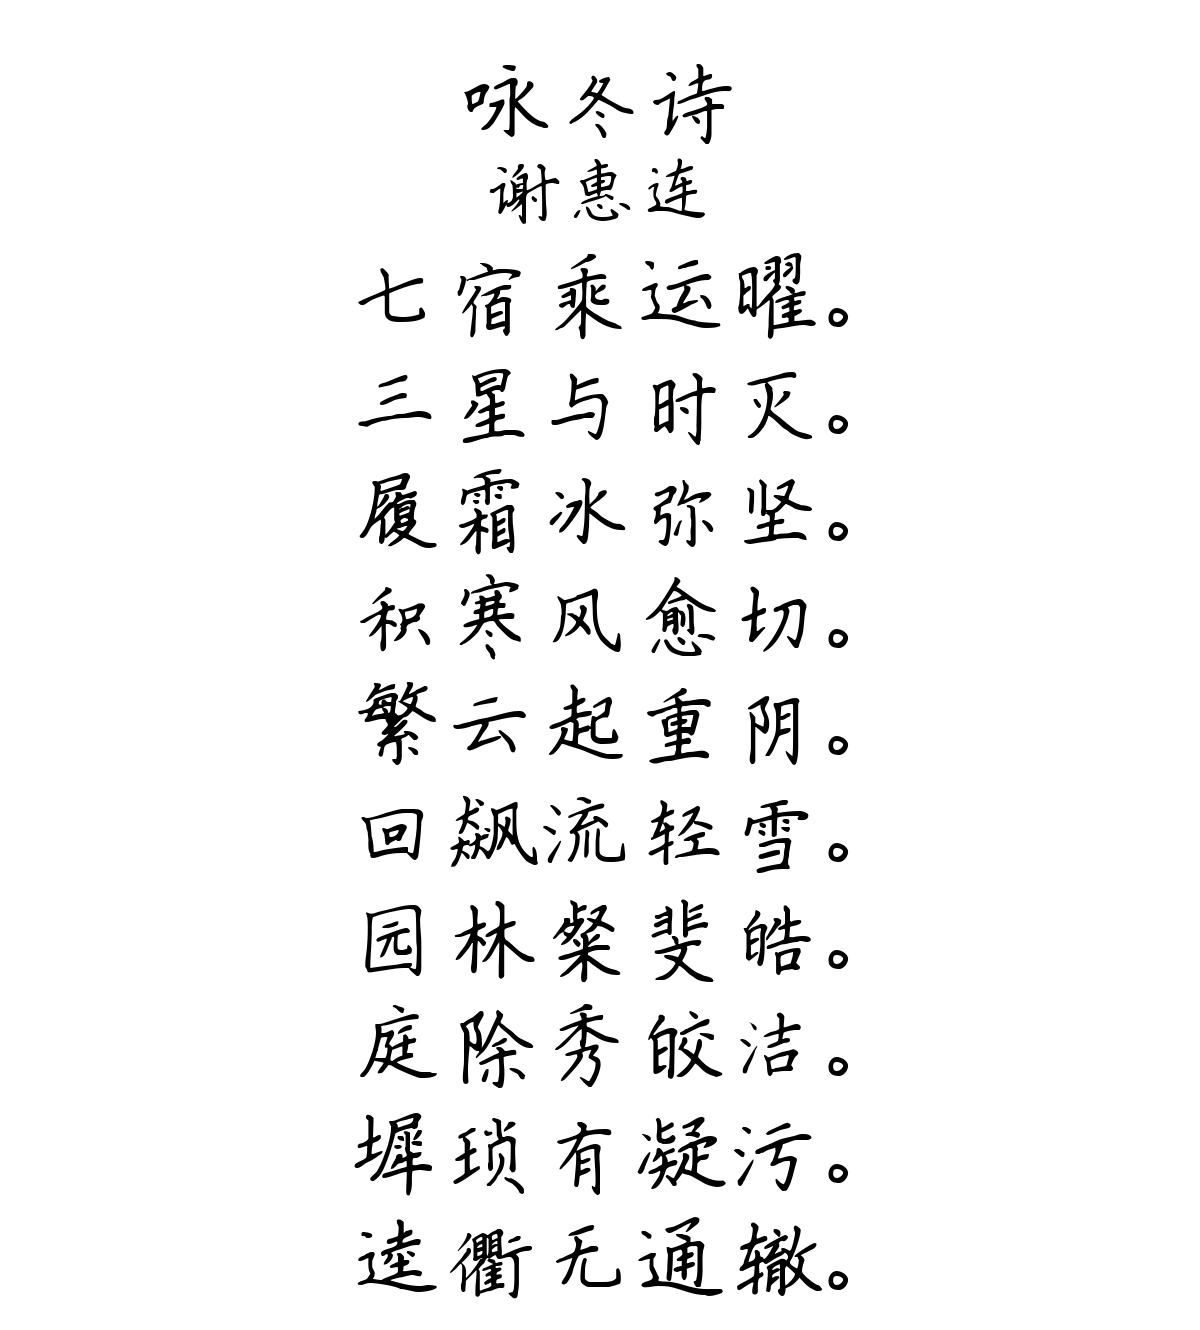 咏冬诗
谢惠连
七宿乘运曜。
三星与时灭。
履霜冰弥坚。
积寒风愈切。
繁云起重阴。
回飙流轻雪。
园林粲斐皓。
庭除秀皎洁。
墀琐有凝污。
逵衢无通辙。